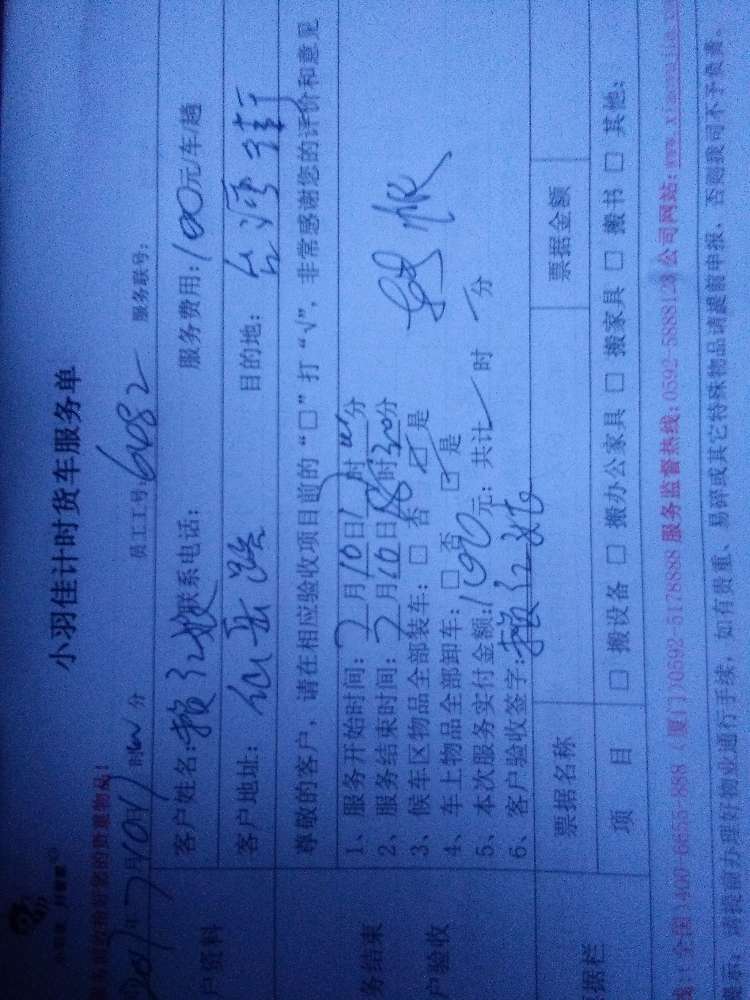 小羽佳计时货车服务单
员工工号：6082 服务联号：
2017年7月10日 时 分
客户姓名：赖红姣 联系电话： 服务费用：100元/车/趟
客户地址：仙岳路 目的地：台湾街
尊敬的客户，请在相应验收项目前的“□”打“√”，非常感谢您的评价和意见
1、服务开始时间：7月10日 时 分
2、服务结束时间：7月10日 时30分
3、候车区物品全部装车：□ 否 ☑ 是
4、车上物品全部卸车：□ 否 ☑ 是
5、本次服务实付金额：100元；共计 时 分
6、客户验收签字：赖红姣
户资料
务结束
户验收
票据名称 票据金额
据栏
项 目 □ 搬设备 □ 搬办公家具 □ 搬家具 □ 搬书 □ 其他：
（全国）400-6655-888 （厦门）0592-5178888 服务监督热线：0592-5888123 公司网站：www.xiaoyujia.
示：请提前办理好物业通行手续，如有贵重、易碎或其它特殊物品请提前申报，否则我司不予负责。